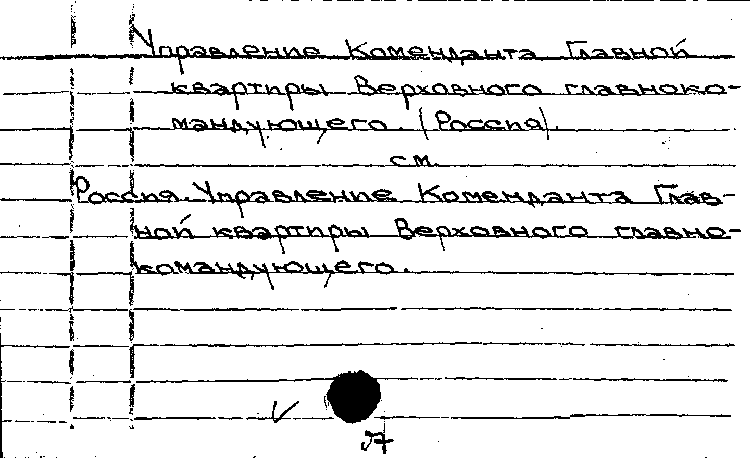 Управление Коменданта Главной
квартиры Верховного главноко-
мандующего. (Россия).
см.
Россия. Управление Коменданта Глав-
ной квартиры Верховного главно-
командующего.